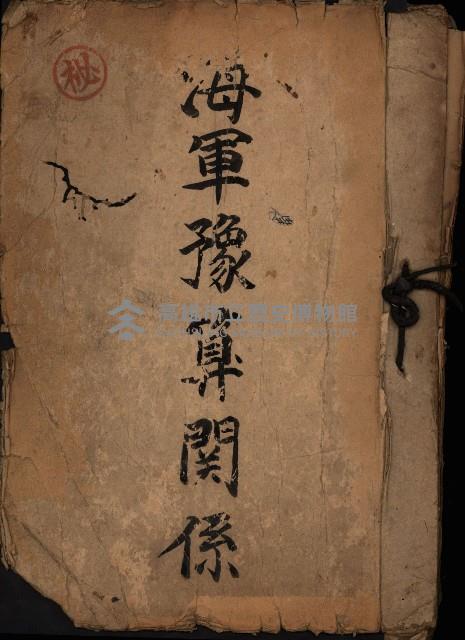 秘
海軍豫算関係
高雄市立歷史博物館